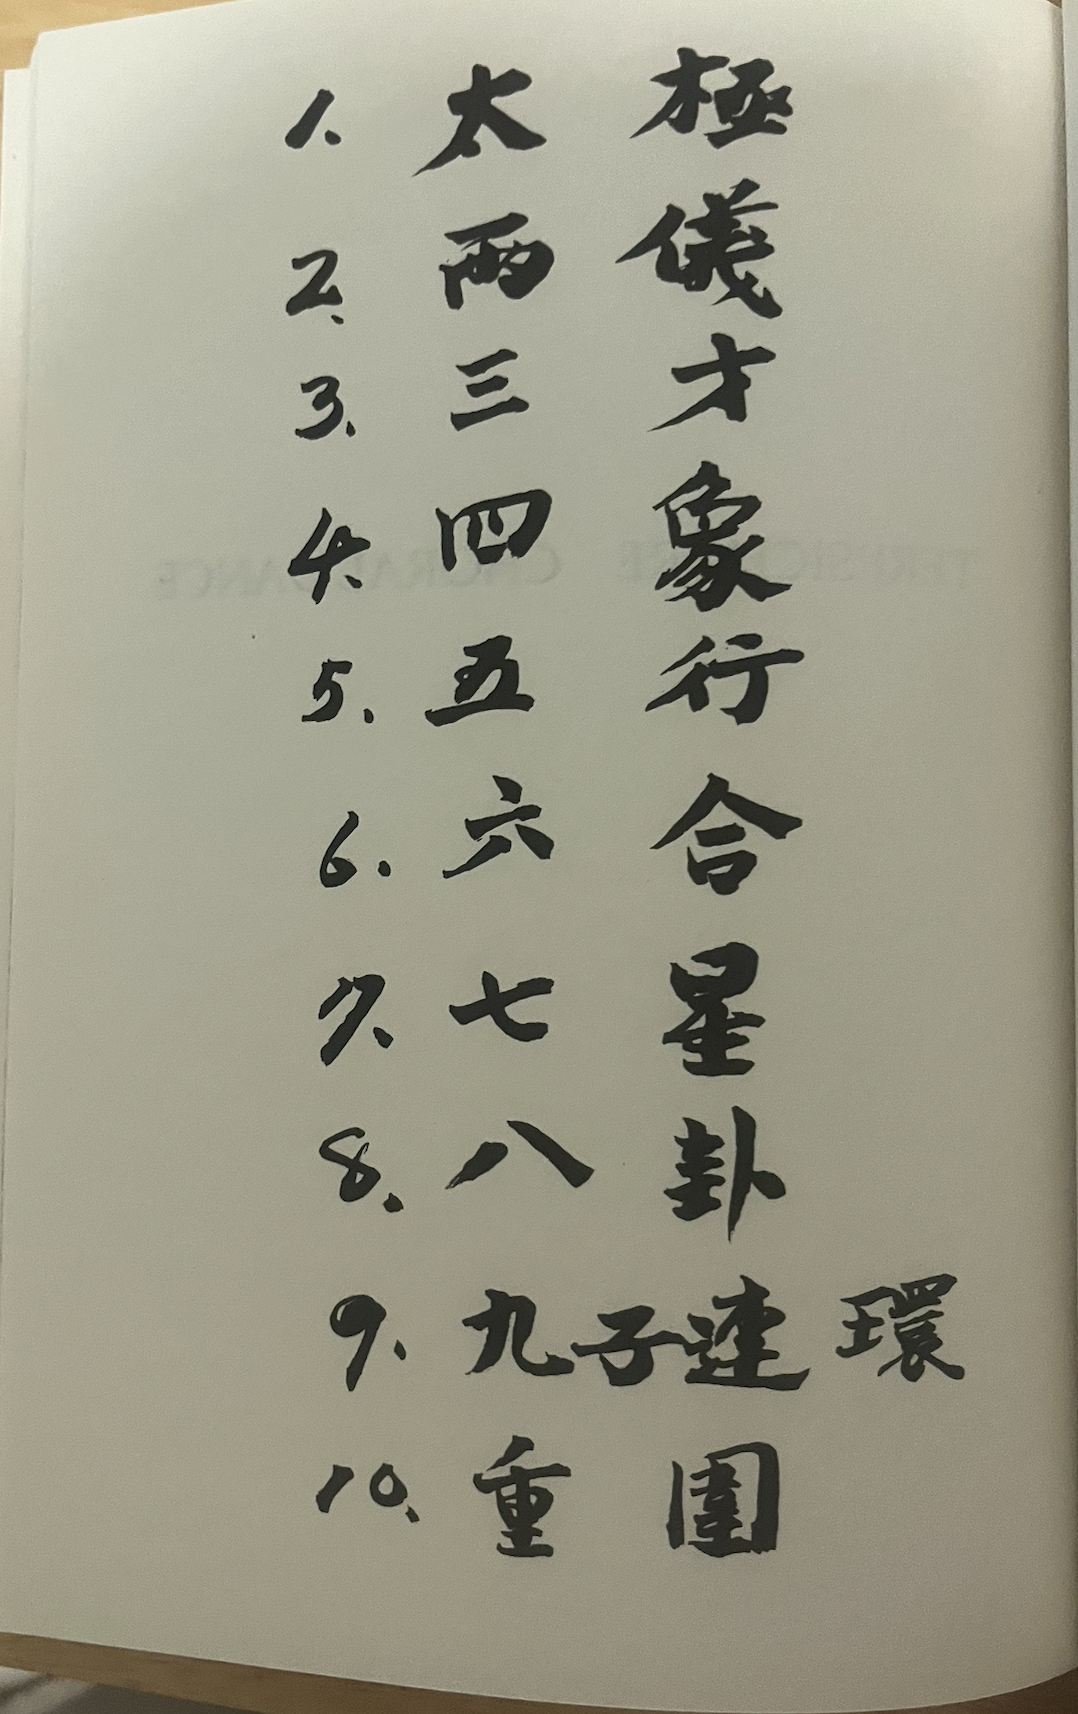 1. 太極
2. 兩儀
3. 三才
4. 四象
5. 五行
6. 六合
7. 七星
8. 八卦
9. 九子連環
10. 重圍